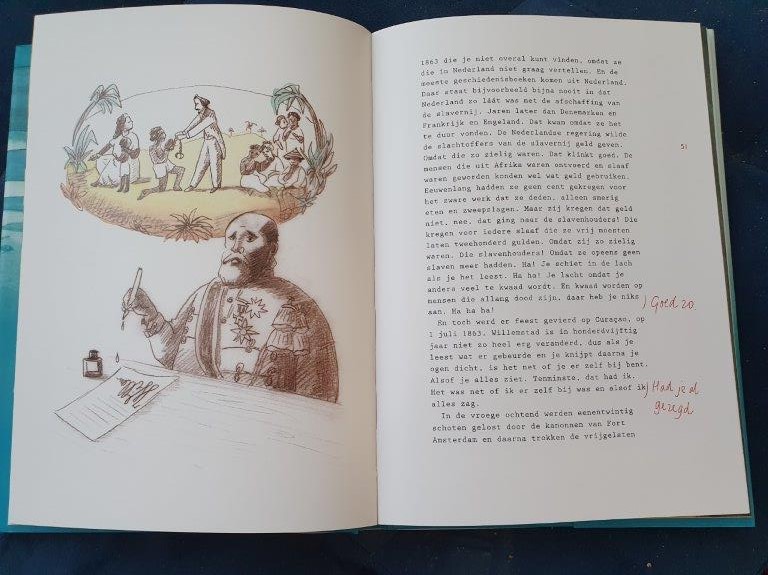 1863 die je niet overal kunt vinden, omdat ze
die in Nederland niet graag vertellen. En de
meeste geschiedenisboeken komen uit Nederland.
Daar staat bijvoorbeeld bijna nooit in dat
Nederland zo láát was met de afschaffing van
de slavernij. Jaren later dan Denemarken en
Frankrijk en Engeland. Dat kwam omdat ze het
te duur vonden. De Nederlandse regering wilde
de slachtoffers van de slavernij geld geven.
51
Omdat die zo zielig waren. Dat klinkt goed. De
mensen die uit Afrika waren ontvoerd en slaaf
waren geworden konden wel wat geld gebruiken.
Eeuwenlang hadden ze geen cent gekregen voor
het zware werk dat ze deden, alleen smerig
eten en zweepslagen. Maar zij kregen dat geld
niet, nee, dat ging naar de slavenhouders! Die
kregen voor iedere slaaf die ze vrij moesten
laten tweehonderd gulden. Omdat zij zo zielig
waren. Die slavenhouders! Omdat ze opeens geen
slaven meer hadden. Ha! Je schiet in de lach
als je het leest. Ha ha! Je lacht omdat je
anders veel te kwaad wordt. En kwaad worden op
mensen die allang dood zijn, daar heb je niks
aan. Ha ha ha!
Goed zo
En toch werd er feest gevierd op Curaçao, op
1 juli 1863. Willemstad is in honderdvijftig
jaar niet zo heel erg veranderd, dus als je
leest wat er gebeurde en je knijpt daarna je
ogen dicht, is het net of je er zelf bij bent.
Alsof je alles ziet. Tenminste, dat had ik.
Het was net of ik er zelf bij was en alsof ik
alles zag.
Had je al
gezegd
In de vroege ochtend werden eenentwintig
schoten gelost door de kanonnen van Fort
Amsterdam en daarna trokken de vrijgelaten